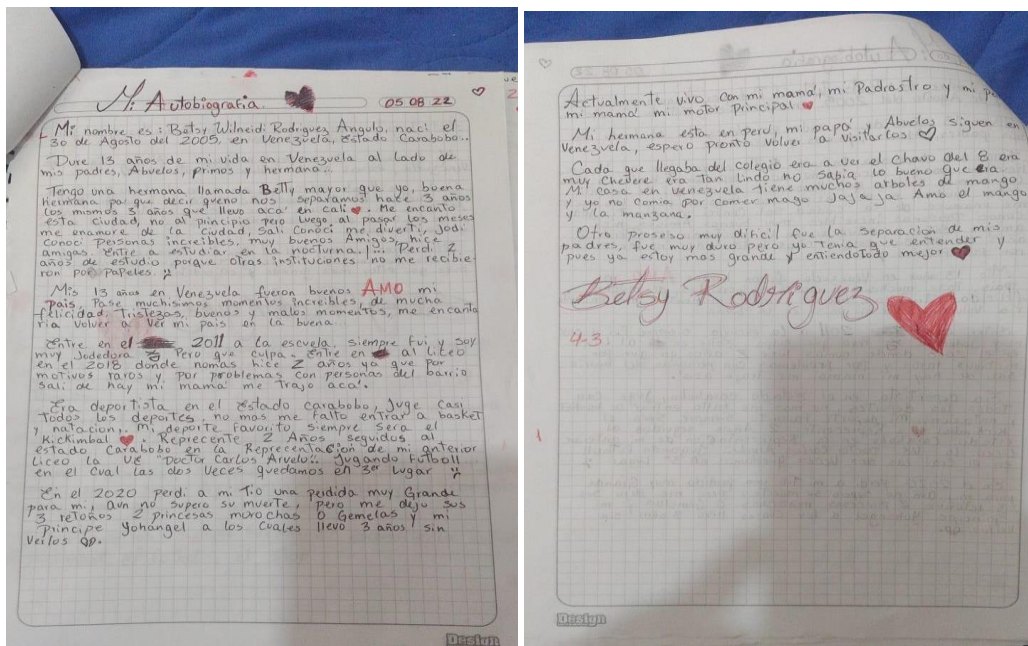 Mi Autobiografia.
05 08 22
Mi nombre es: Betsy Wilneidi Rodriguez Angulo, naci el
30 de Agosto del 2005, en Venezuela, Estado Carabobo...
Dure 13 años de mi vida en Venezuela al Lado de
mis padres, Abuelos, primos y hermana...
Tengo una hermana llamada Betty mayor que yo, buena
hermana pa que decir queno nos separamos hace 3 años
los mismos 3 años que llevo acá en Cali. Me encanto
esta ciudad, no al principio pero luego al pasar los meses
me enamore de la ciudad, Sali Conoci me diverti, Jodi
Conoci personas increibles, muy buenos Amigos, hice
amigas. Entre a estudiar en la nocturna. Perdi 2
años de estudio porque otras instituciones no me recibie-
ron por Papeles.
Mis 13 años en Venezuela fueron buenos AMO mi
Pais, Pase muchisimos momentos increibles, de mucha
felicidad, Tristezas, buenos y malos momentos, me encanta
ria volver a ver mi pais en la buena
Entre en el 2011 a la escuela, siempre fui y soy
muy Jodedora Pero que culpa. Entre en al liceo
en el 2018 donde nomas hice 2 años ya que por
motivos raros y por problemas con personas del barrio
Sali de hay mi mamá me trajo acá.
Era deportista en el Estado carabobo, Juge Casi
Todos los deportes, no mas me falto entrar a basket
y natacion,. Mi deporte favorito siempre sera el
Kickimbal. Reprecente 2 Años seguidos al
estado Carabobo en la Reprecentacion de mi anterior
Liceo la UE "Doctor Carlos Arvelo". Jugando Futboll
en el cual las dos Veces quedamos en 3er Lugar
En el 2020 perdi a mi Tio una perdida muy Grande
para mi, aun no supero su muerte, pero me dejo sus
3 retoños 2 princesas murochas o Gemelas y mi
principe Yohangel a los Cuales llevo 3 años sin
verlos.
Design
Actualmente vivo con mi mamá, mi Padrastro y mi
mi mamá mi motor Principal
Mi hermana esta en perú, mi papá y Abuelos siguen en
Venezuela, espero pronto volver a visitarlos
Cada que llegaba del colegio era a ver el Chavo del 8 era
muy Chevere era Tan lindo no sabia lo bueno que era
Mi casa en venezuela Tiene muchos arboles de mango
y yo no comia por comer mago Jajaja. Amo el mango
y la manzana.
Otro proseso muy dificil fue la separacion de mis
padres, fue muy duro pero yo Tenia que entender y
pues ya estoy mas grande y entiendo Todo mejor
Betsy Rodriguez
4-3
Design